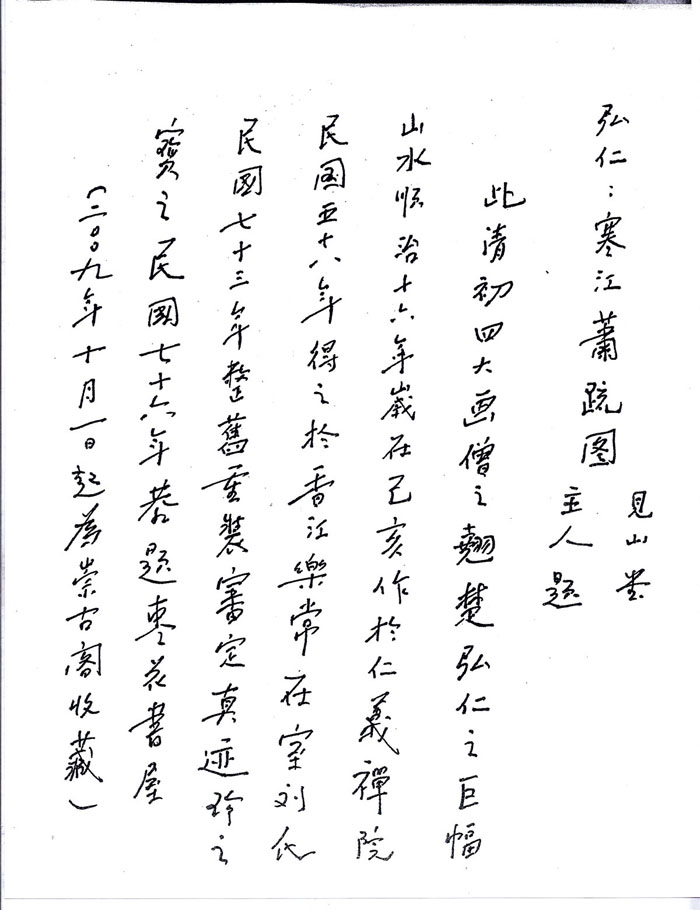 弘仁：寒江蕭疏图
見山堂
主人題
此清初四大画僧之翹楚弘仁之巨幅
山水順治十六年嵗在己亥作於仁義禪院
民國五十八年得之於香江樂常在室刘氏
民國七十三年整舊重裝審定真迹珍之
寳之民國七十六年恭題枣花書屋
（二〇〇九年十月一日起為崇古阁收藏）